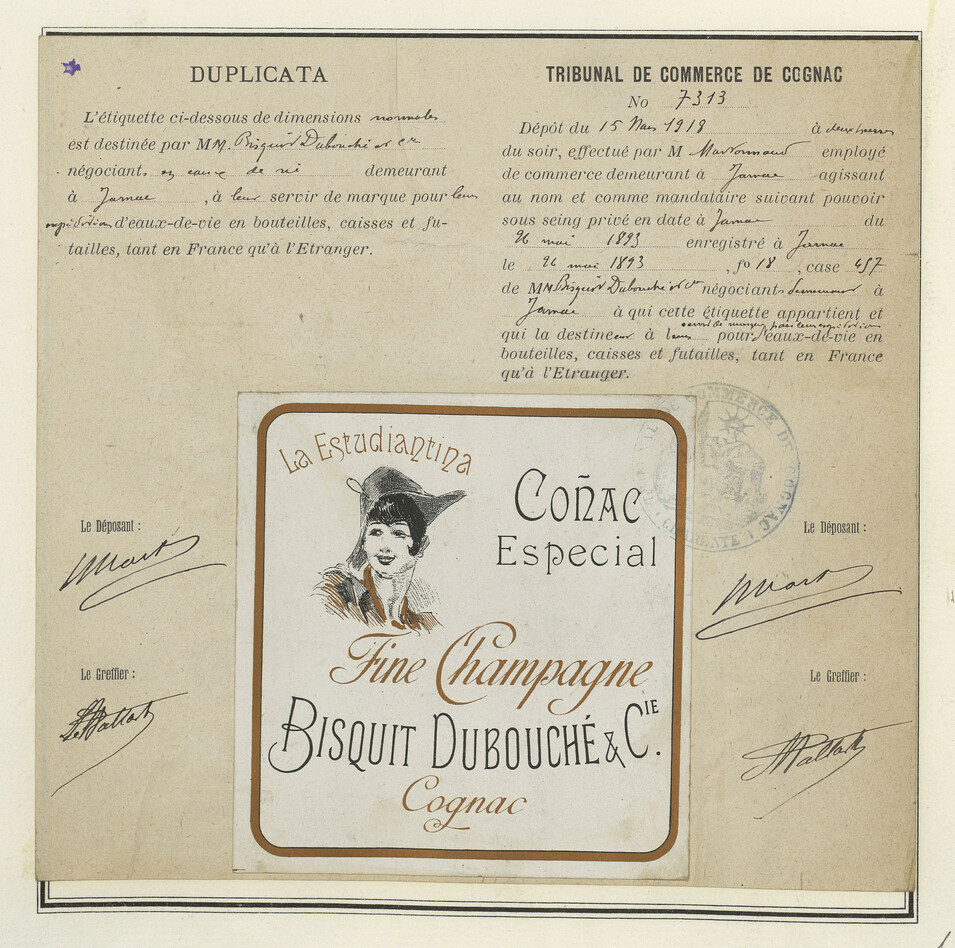 DUPLICATA
L'étiquette ci-dessous de dimensions normales
est destinée par MM. Bisquit Dubouché et Cie
négociants en eaux de vie demeurant
à Jarnac, à leur servir de marque pour leurs
expéditions d'eaux-de-vie en bouteilles, caisses et fu-
tailles, tant en France qu'à l'Etranger.
TRIBUNAL DE COMMERCE DE COGNAC
No 7313
Dépôt du 15 Mars 1918 à deux heures
du soir, effectué par M employé
de commerce demeurant à Jarnac agissant
au nom et comme mandataire suivant pouvoir
sous seing privé en date à Jarnac du
26 mai 1893 enregistré à Jarnac
le 26 mai 1893, fo 18, case 457
de MM Bisquit Dubouché et Cie négociants demeurant à
Jarnac à qui cette étiquette appartient et
servir de marque pour leurs expéditions
qui la destinent à leur pour d'eaux-de-vie en
bouteilles, caisses et futailles, tant en France
qu'à l'Etranger.
La Estudiantina
Coñac
Especial
Fine Champagne
Bisquit Dubouché & Cie.
Cognac
Le Déposant :
Le Greffier :
Le Déposant :
Le Greffier :
TRIBUNAL DE COMMERCE DE COGNAC
(CHARENTE)